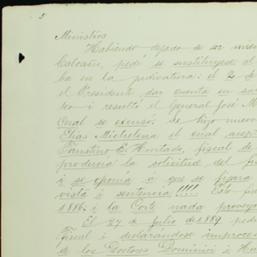 Ministros
Habiendo dejado de ser
Calcaño, pedí se sustituyese al
ba en la judicatura: el 2 de
el Presidente dar cuenta en
so i resultó el General José M
cual se excusó: de hijo nuevo
Elias Michelena el cual
Faustino E. Hurtado, fiscal de
produccia la solicitud del fi
i se oponia á que se fijara
vista á sentencia !!!! Esto
1886 i la Corte nada proveyó
El 27 de julio de 1889 pedi
final i declarándose improce
de los Doctores Dominici i H